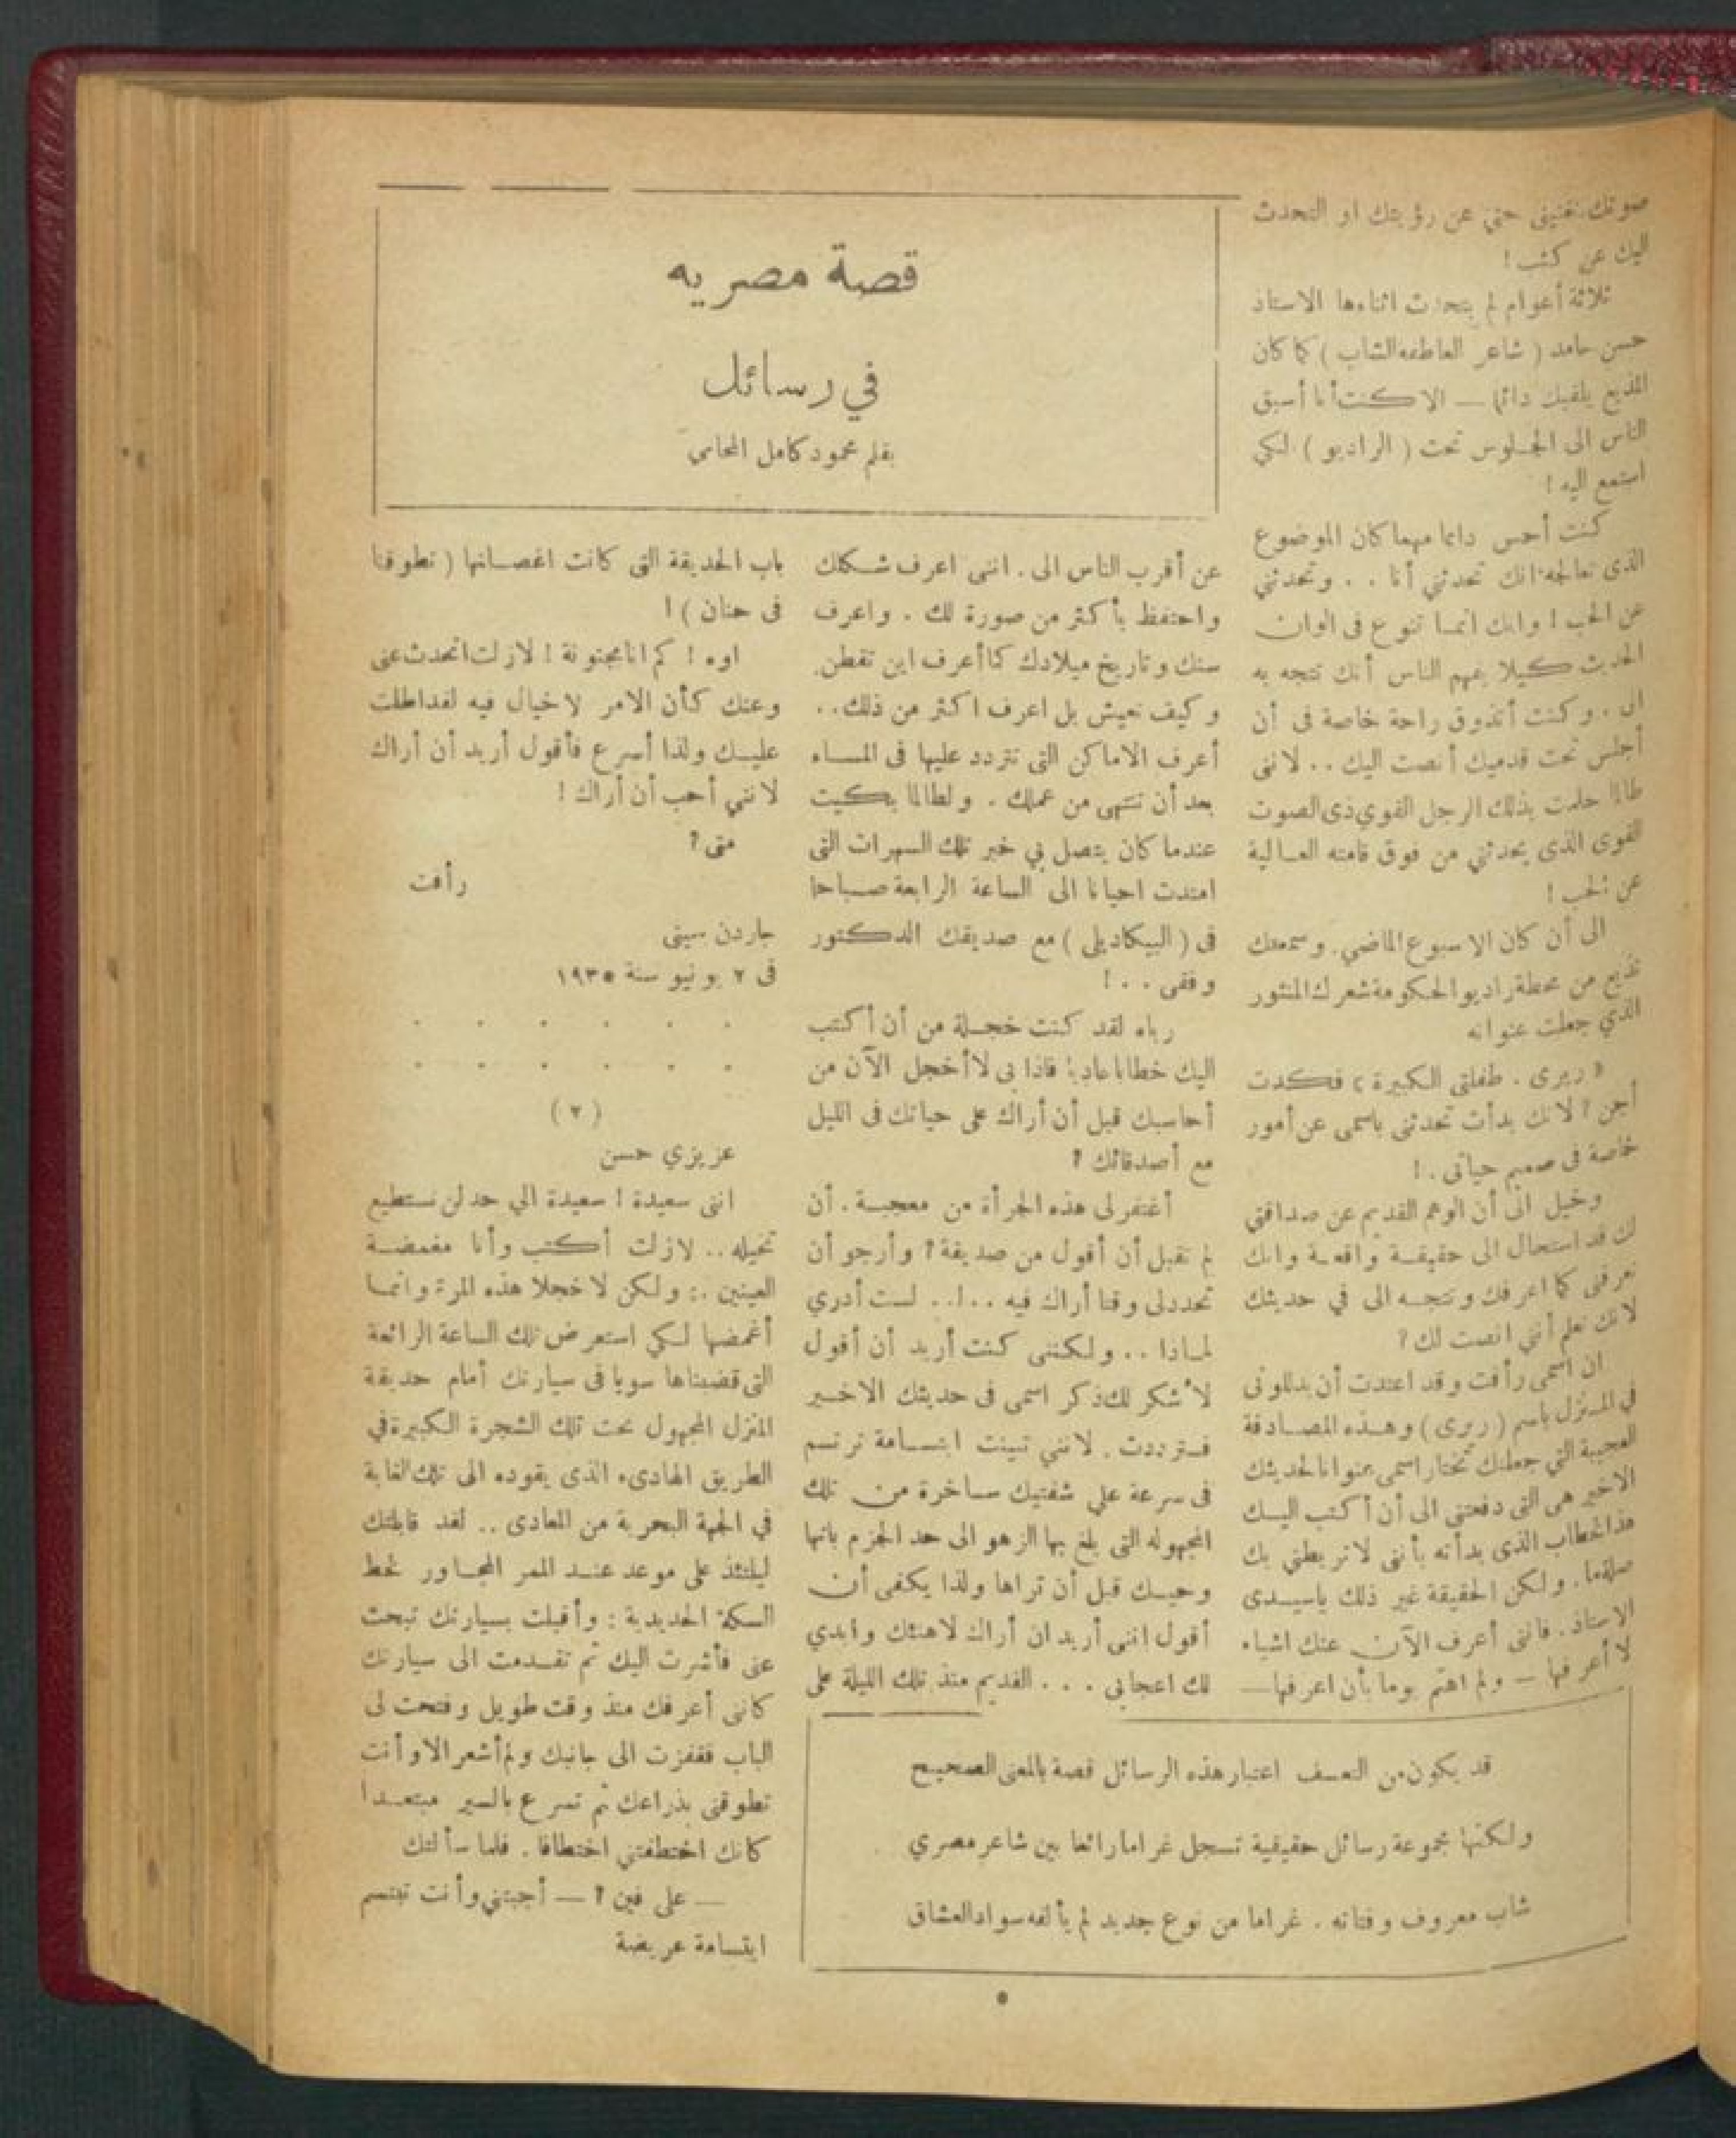 قصة مصريه
في رسائل
بقلم محمود كامل المحامى
صوتك تغنينى حتى عن رؤيتك او التحدث
اليك عن كثب !
ثلاثة أعوام لم يتحدث اثناءها الاستاذ
حسن حامد ( شاعر العاطفه الشاب ) كما كان
المذيع يلقبك دائما — الا كنت أنا أسبق
الناس الى الجلوس تحت ( الراديو ) لكي
استمع اليه !
كنت أحس دائما مهما كان الموضوع
الذى تعالجه انك تحدثني أنا . . وتحدثني
عن الحب ! وانك انما تنوع فى الوان
الحديث كيلا يتهم الناس أنك تتجه به
الى . وكنت أتذوق راحة خاصة فى أن
أجلس تحت قدميك أنصت اليك . . لانني
طالما حلمت بذلك الرجل القوي ذى الصوت
القوى الذى يحدثني من فوق قامته العالية
عن الحب !
الى أن كان الاسبوع الماضي . وسمعتك
تذيع من محطة راديو الحكومة شعرك المنثور
الذي جعلت عنوانه
« ريرى . طفلتى الكبيرة » فكدت
أجن ؟ لانك بدأت تحدثنى باسمى عن أمور
خاصة فى صميم حياتى . !
وخيل الى أن الوهم القديم عن صداقتي
لك قد استحال الى حقيقة واقعة وانك
تعرفنى كما اعرفك وتتجه الى في حديثك
لانك تعلم أنني انصت لك ؟
ان اسمى رأفت وقد اعتدت أن يدللونى
في المنزل باسم ( ريرى ) وهذه المصادفة
العجيبة التي جعلتك تختار اسمى عنوانا لحديثك
الاخير هى التى دفعتنى الى أن أكتب اليك
هذا الخطاب الذى بدأته بأننى لا تربطني بك
صلة ما . ولكن الحقيقة غير ذلك ياسيدى
الاستاذ . فانى أعرف الآن عنك اشياء
لا أعرفها — ولم اهتم يوما بأن اعرفها —
عن أقرب الناس الى . اننى اعرف شكلك
واحتفظ بأكثر من صورة لك . واعرف
سنك وتاريخ ميلادك كما أعرف اين تقطن .
وكيف تعيش بل اعرف اكثر من ذلك . .
أعرف الاماكن التى تتردد عليها فى المساء
بعد أن تنتهى من عملك . ولطالما بكيت
عندما كان يتصل بي خبر تلك السهرات التى
امتدت احيانا الى الساعة الرابعة صباحا
فى ( البيكاديلى ) مع صديقك الدكتور
وفقى . . !
رباه لقد كنت خجلة من أن أكتب
اليك خطابا عاديا فماذا بى لا أخجل الآن من
أحاسبك قبل أن أراك على حياتك فى الليل
مع أصدقائك ؟
أغتفر لى هذه الجرأة من معجبة . أن
لم تقبل أن أقول من صديقة ؟ وأرجو أن
تحدد لى وقتا أراك فيه . . ! . . لست أدري
لماذا . . ولكننى كنت أريد أن أقول
لأشكر لك ذكر اسمى فى حديثك الاخير
فترددت . لانني تبينت ابتسامة ترتسم
فى سرعة علي شفتيك ساخرة من تلك
المجهوله التى بلغ بها الزهو الى حد الجزم بانها
وحيك قبل أن تراها ولذا يكفى أن
أقول اننى أريد ان أراك لاهنئك وأبدي
لك اعجابى . . . القديم منذ تلك الليلة على
باب الحديقة التى كانت اغصانها ( تطوقنا
فى حنان ) !
اوه ! كم انا مجنونة ! لازلت اتحدث عنى
وعنك كأن الامر لا خيال فيه لقد اطلت
عليك ولذا أسرع فأقول أريد أن أراك
لانني أحب أن أراك !
متى ؟
رأفت
جاردن سيتى
فى ٢ يونيو سنة ١٩٣٥
. . . . . .
. . . . . .
( ٢ )
عزيزي حسن
انتى سعيدة ! سعيدة الي حد لن تستطيع
تخيله . . لازلت أكتب وأنا مغمضة
العينين . : ولكن لا خجلا هذه المرة وانما
أغمضها لكي استعرض تلك الساعة الرائعة
التى قضيناها سويا فى سيارتك أمام حديقة
المنزل المجهول تحت تلك الشجرة الكبيرة في
الطريق الهادىء الذى يقوده الى تلك الغابة
في الجهة البحرية من المعادى . . لقد قابلتك
ليلتئذ على موعد عند الممر المجاور لخط
السكة الحديدية : وأقبلت بسيارتك تبحث
عنى فأشرت اليك ثم تقدمت الى سيارتك
كاننى أعرفك منذ وقت طويل وفتحت لى
الباب فقفزت الى جانبك ولم أشعر الا وأنت
تطوقنى بذراعك ثم تسرع بالسير مبتعدا
كانك اختطفتني اختطافا . فلما سألتك
— على فين ؟ — أجبتني وأنت تبتسم
ابتسامة عريضة
قد يكون من التعسف اعتبار هذه الرسائل قصة بالمعنى الصحيح
ولكنها مجموعة رسائل حقيقية تسجل غراما رائعا بين شاعر مصري
شاب معروف وفتاته . غراما من نوع جديد لم يألفه سواد العشاق
٥